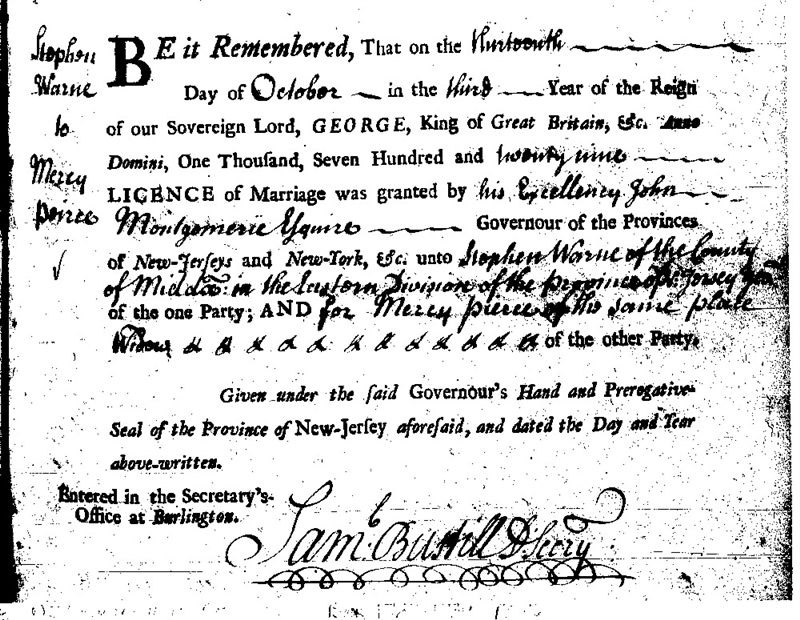 Stephen
Warne
to
Mercy
peirce
BE it Remembered, That on the thirteenth
Day of October in the third Year of the Reign
of our Sovereign Lord, GEORGE, King of Great Britain, &c. Anno
Domini, One Thouſand, Seven Hundred and twenty nine
LICENCE of Marriage was granted by his Excellency John
Montgomerie Esquire Governour of the Provinces
of New-Jerſeys and New-York, &c. unto Stephen Warne of the County
of Middx: in the Eastern Division of the province of N: Jersey
of the one Party; AND for Mercy pierce of the same place
Widow & & & & & & & & & & & of the other Party.
Given under the ſaid Governour's Hand and Prerogative-
Seal of the Province of New-Jerſey aforeſaid, and dated the Day and Year
above-written.
Entered in the Secretary's-
Office at Burlington.
Sam:l Bustill D Secry